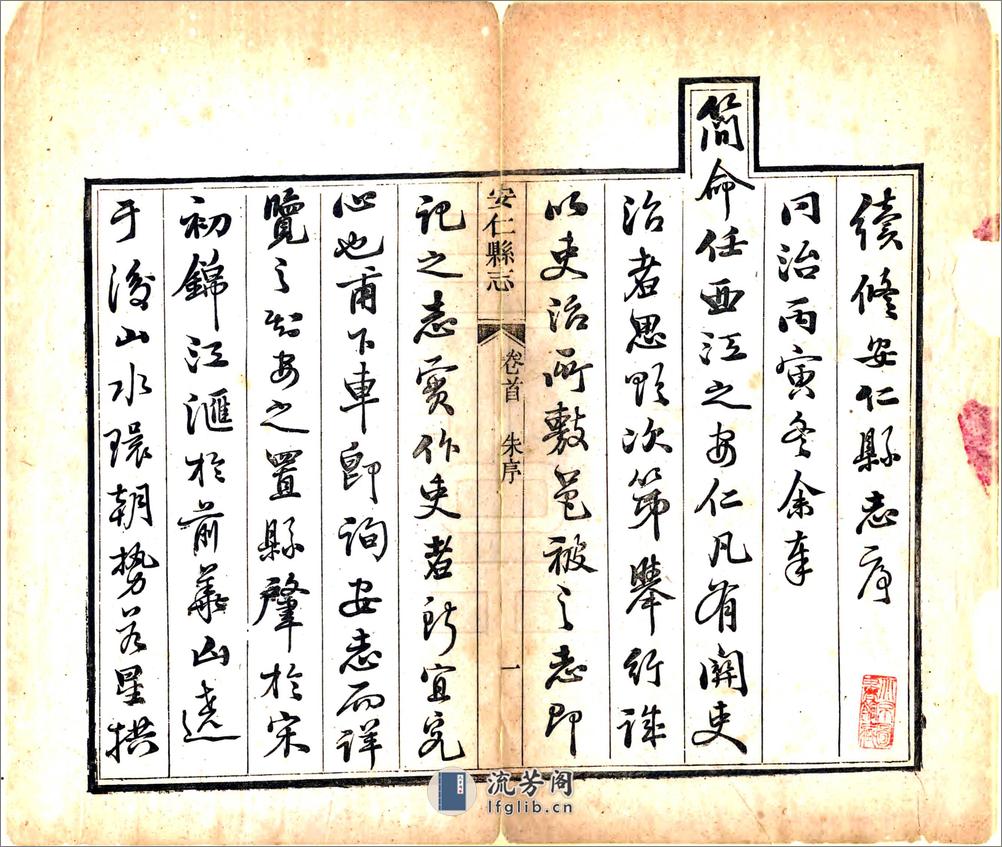 續修安仁縣志序
同治丙寅冬余奉
簡命任西江之安仁凡有關吏
治者思欲次第舉行誠
以吏治所敷邑被之志即
安仁縣志 卷首 朱序 一
記之志實作吏者所宜究
心也甫下車即詢安志而詳
覽之知安之置縣肇於宋
初錦江滙於前華山遶
于後山水環朝勢若星拱
流芳阁
lfglib.cn